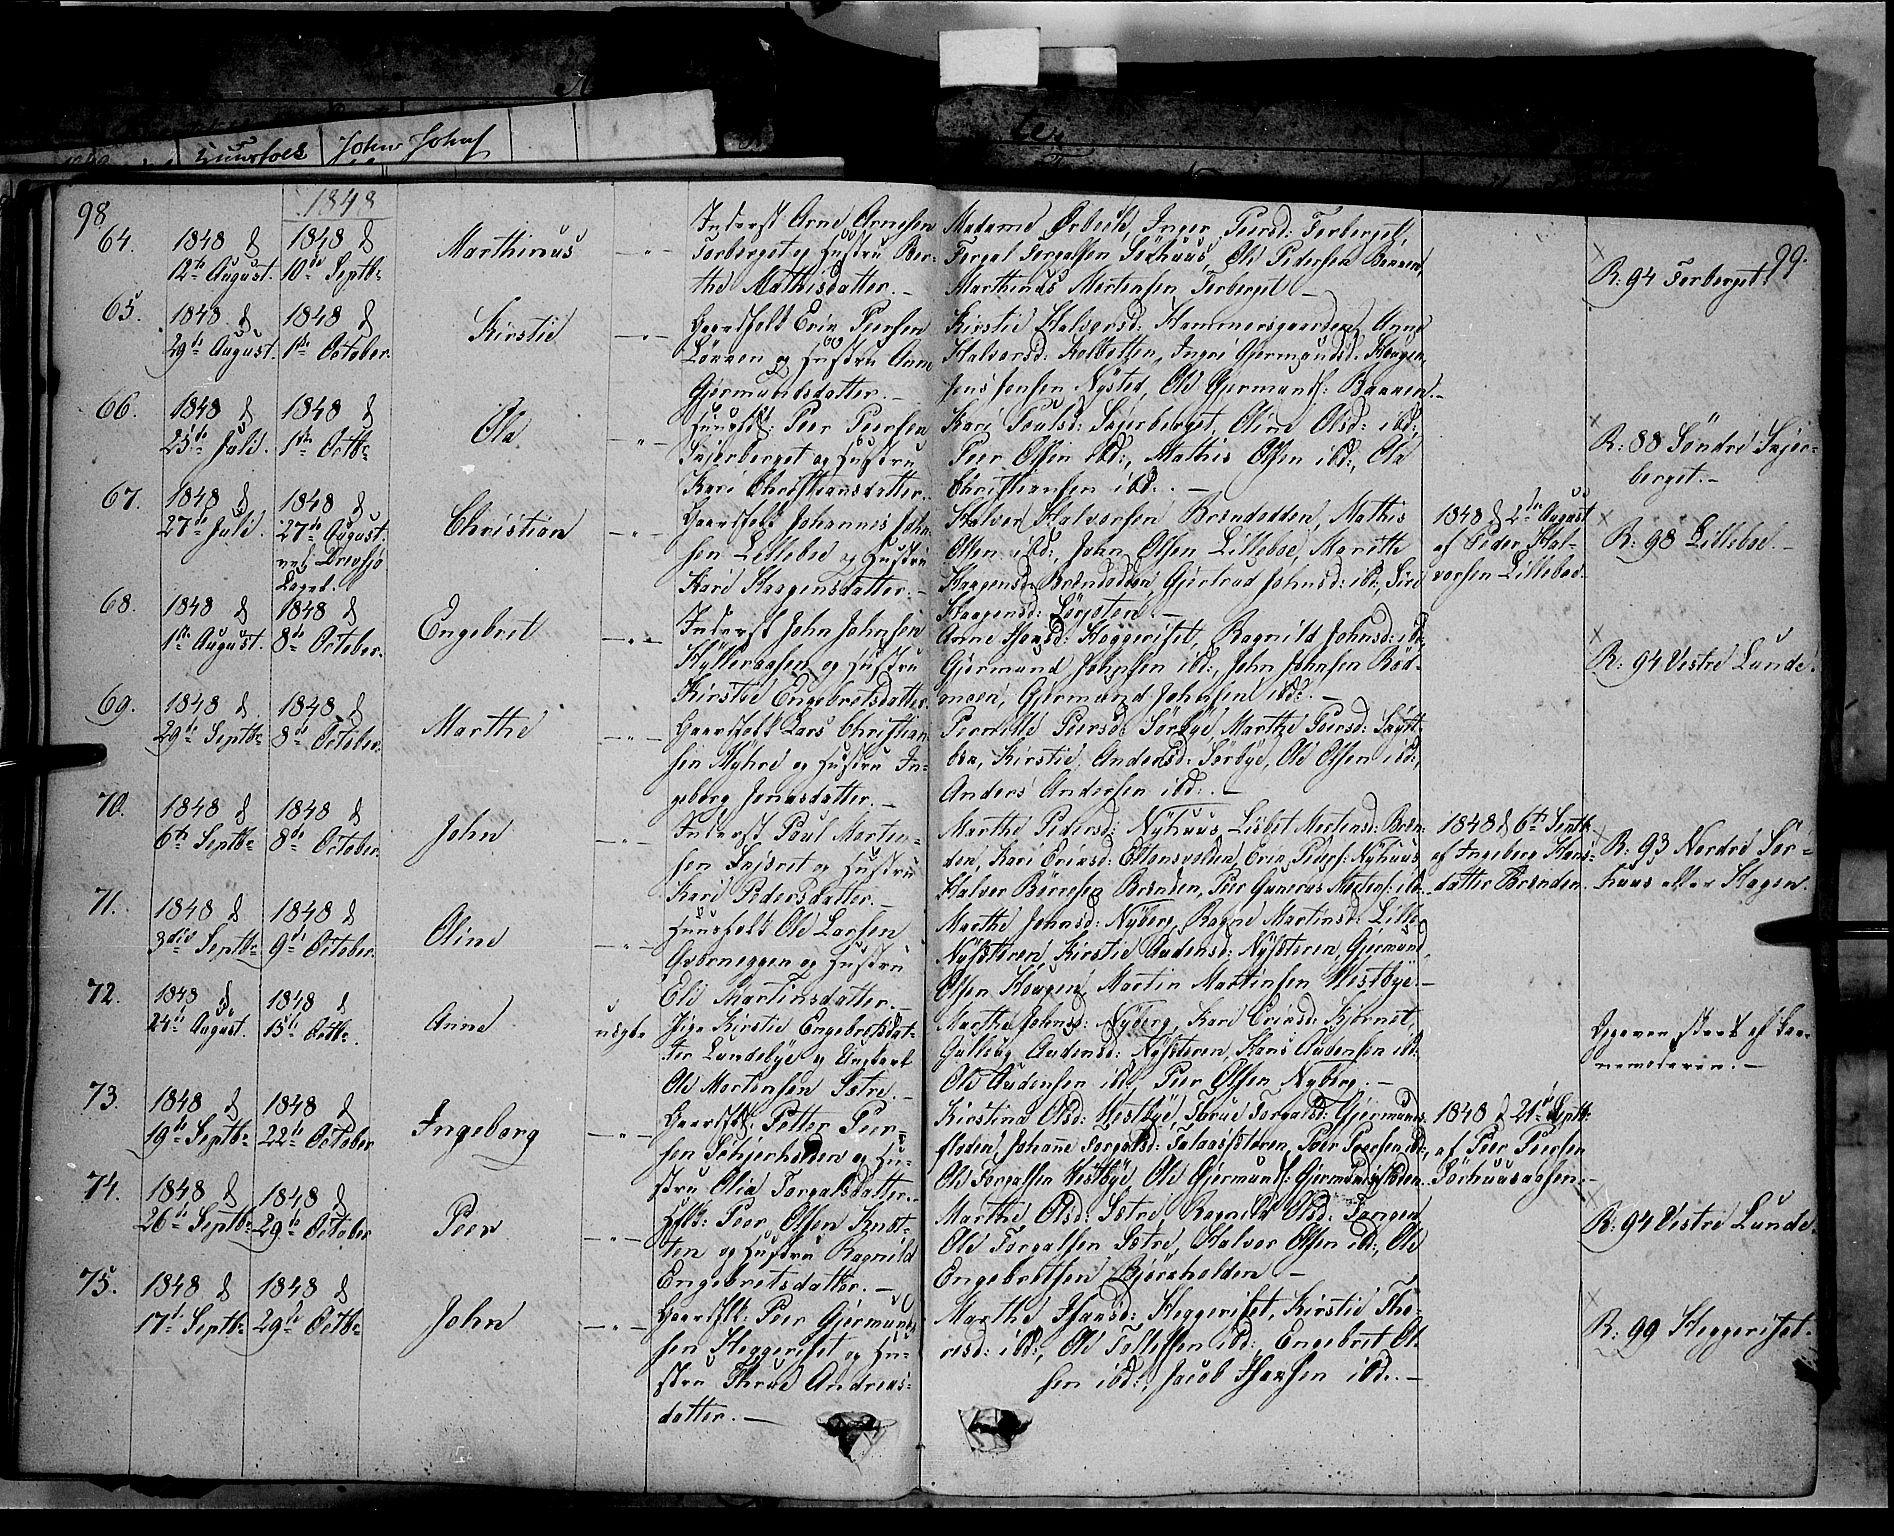 Huusfolk John Johns
ter
98
1848
99.
64.
1848 d
12te August.
1848 d
10de Septbr
Marthinus
— " —
Inderst Arne Arnesen
Torberget og Hustru Ber-
the Mathisdatter. —
Madame Ørbech, Inger Peersd: Torberget,
Torgal Torgalsen Sörhuus, Ole Pedersen Baanen,
Marthinus Mortensen Torberget —
R: 94 Torberget.
65.
1848 d
29de August.
1848 d
1ste October.
Kirstie
— " —
Gaardfolk Eric Peersen
Lönaen og Hustru Anne
Gjermundsdatter. —
Kirstie Halvorsd: Hammersgaarden, Anne
Halvorsd: Kolbotten, Ingri Gjermundsd: Haugen,
Jens Jensen Nysted, Ole Gjermunds: Baanen. —
66.
1848 d
25de Juli.
1848 d
1ste Octbr
Ola
— " —
Huusfolk: Peer Peersen
Skjerberget og Hustru
Kari Christiansdatter.
Kari Poulsd: Skjerberget, Oline Olsd: ibd:,
Peer Olsen ibd:, Mathis Olsen ibd:, Ole
Christiansen ibd: . —
R: 88 Söndre Skjer-
berget. —
67.
1848 d
27de Juli.
1848 d
27de August.
ved Drevsjø
Capel.
Christian
— " —
Gaardfolk Johannes John-
sen Lilleboe og Hustru
Kari Haagensdatter. —
Halvor Halvorsen Brændodden, Mathis
Olsen ibd:, John Olsen Lilleboe, Marithe
Haagensd: Brændodden, Gjertrud Johnsd: ibd:, Siri
Haagensd: —
1848 d 2den August
af Peder Hal-
vorsen Lilleboe.
R: 98 Lilleboe. —
68.
1848 d
1ste August.
1848 d
8de October.
Engebret
— " —
Inderst John Johnsen
Hylleraasen og Hustru
Kirstie Engebretsdatter
Anne Hansd: Heggeriset, Ragnild Johnsd: ibd:,
Gjermund Johnsen ibd:, John Johnsen Röd-
moen, Gjermund Johnsen ibd: —
R: 94 Vestre Lunde.
69.
1848 d
29de Septbr
1848 d
8de October.
Marthe
— " —
Gaardfolk Lars Christian-
sen Myhre og Hustru In-
geborg Jonasdatter. —
Pernille Peersd: Sörbye, Marthe Peersd:
Kirstie Andersd: Sörbye, Ole Olsen ibd:,
Anders Andersen ibd: . —
70.
1848 d
6te Septbr
1848 d
8de October.
John
— " —
Inderst Paul Morten-
sen og Hustru
Kari Pedersdatter. —
Marthe Pedersd: Nyhuus, Lisbet Mortensd: Bræn-
den, Kari Ericsd: Eltensvolden, Eric Peders: Nyhuus,
Halvor Börresen Brænden, Peer Gunerus Mortens: ibd:
1848 d 6te Septbr
af Ingeborg Hans-
datter Brænden.
R: 93 Nordre Sör-
huus eller Hagen.
71.
1848 d
3die Septbr
1848 d
9de October.
Oline
— " —
Huusfolk Ole Larsen
Ouerneggen og Hustru
Eli Martinsdatter. —
Marthe Johnsd: Nyberg, Ragne Martinsd: Lille-
Nysæteren, Kirstie Audensd: Nysæteren, Gjermund
Olsen Haugen, Martin Martinsen Westbye. —
72.
1848 d
24de August.
1848 d
15de Octbr.
Anne
uægte
Pige Kirstie Engebretsdat-
ter Lundebye og Ungkarl
Ole Mortensen Sætre. —
Marthe Johnsd: Nyberg, Kari Ericsd: Kjörnet,
Gulbjør Audensd: Nysæteren, Hans Audensen ibd:
Ole Audensen ibd:, Peer Olsen Nyberg. —
Opgaven strax af Bar-
nemoderen. —
73.
1848 d
19de Septbr
1848 d
22de October
Ingeborg
— " —
Gaardfolk: Petter Peer-
sen Schjerholden og Hu-
stru Olia Torgalsdatter.
Kirstine Olsd: Westbye, Thrue Torgalsd: Gjermunds-
floden, Johanne Torgalsd: Talaassæteren, Peer Peersen ibd:,
Ole Torgalsen Westbye, Ole Gjermunds: Gjermundsfloden.
1848 d 21de Septbr
af Peer Peersen
Sörhuusaasen.
74.
1848 d
26de Septbr
1848 d
29de October
Peer
— " —
Hfk: Peer Olsen Knut-
ten og Hustru Ragnild
Engebretsdatter. —
Marthe Olsd: Sætre, Ragnild Olsd: Tangen,
Ole Torgalsen Sætre, Halvor Olsen ibd:, Ole
Engebretsen Björeholden —
R: 94 Vestre Lunde.
75.
1848 d
17de Septbr
1848 d
29de Octbr
John
— " —
Gaardfk: Peer Gjermund-
sen Heggeriset og Hu-
stru Thrue Andreas-
datter. —
Marthe Hansd: Heggeriset, Kirstie Tho-
resd: ibd:, Ole Tollefsen ibd: Engebret Ol-
sen ibd:, Jacob Hansen ibd: . —
R: 99 Heggeriset.